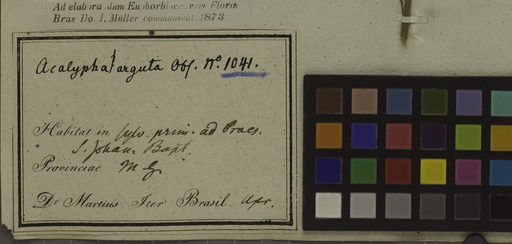 Ad elaborandum Euphorbiacearum Floras
Bras Do. J. Müller communicat. 1873
Acalypha arguta Obs. No. 1041.
Habitat in sylv. prim. ad Praes.
S. Joham. Bapt.
Provinciae M G.
Dr Martius Iter Brasil. Apr.